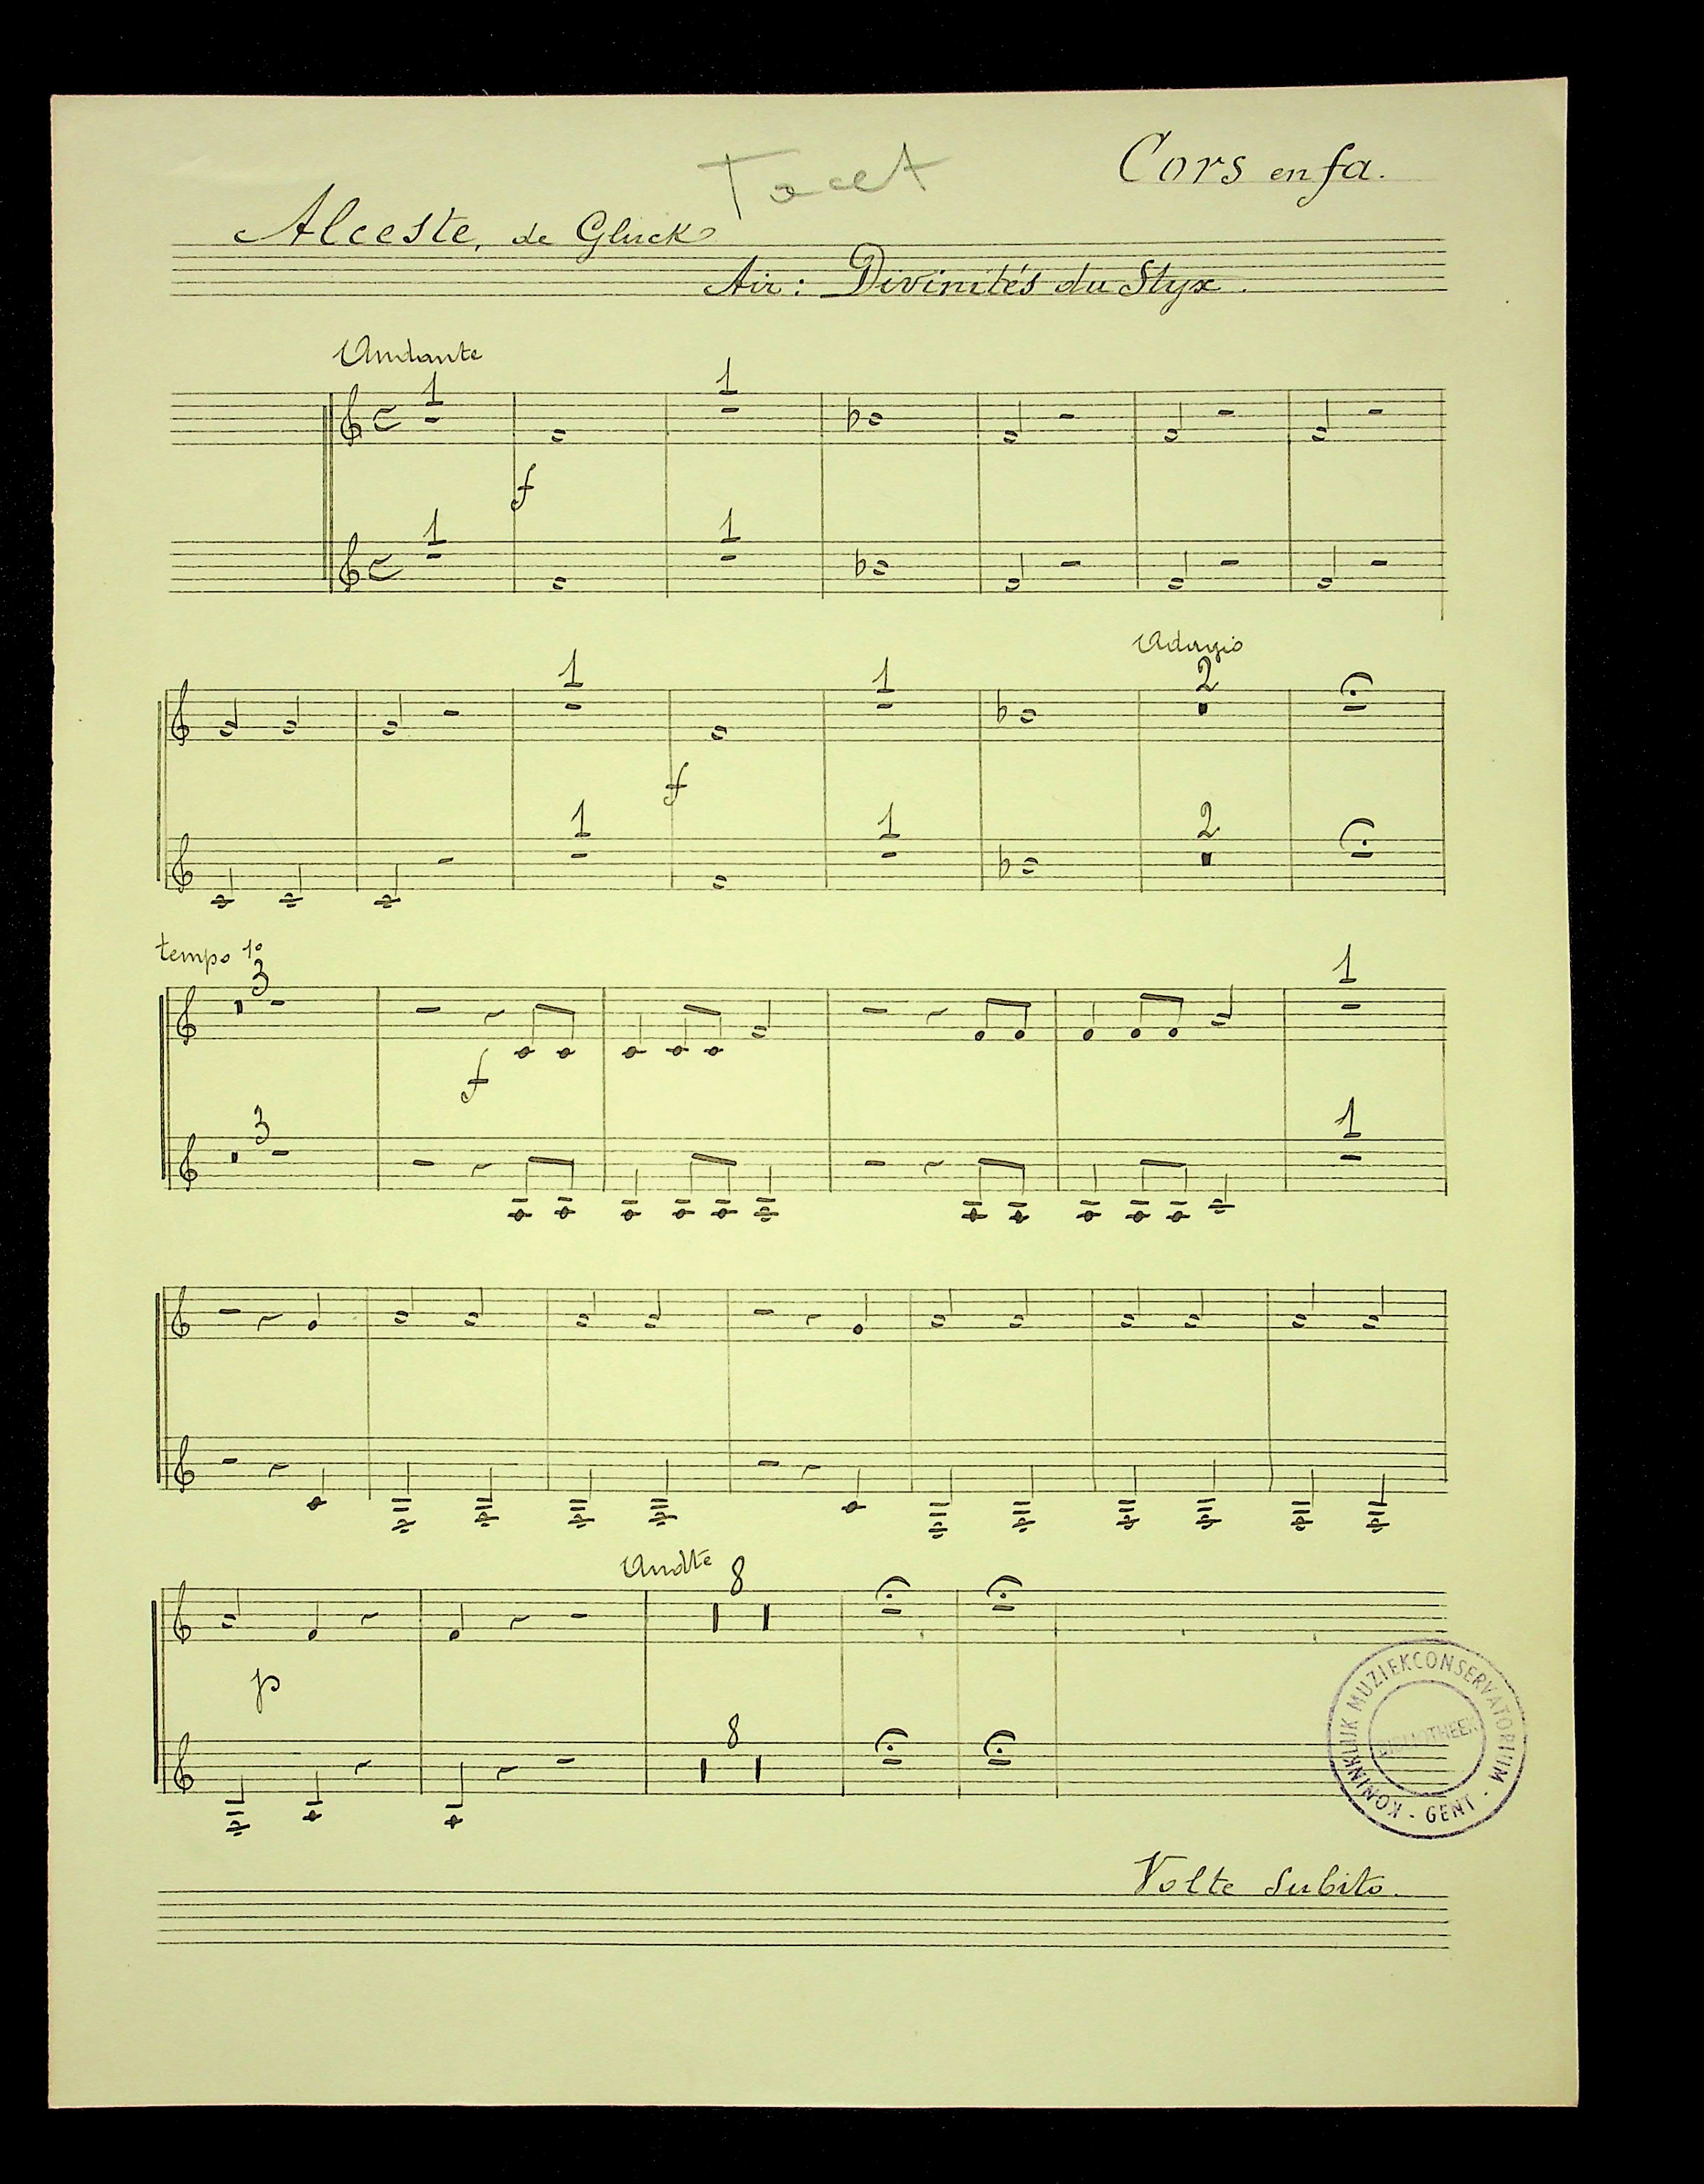 Tacet
Cors en fa.
Alceste, de Gluck
Air: Divinités du Styx.
Andante
1 1
f
1 1
Adagio
1 1 2
f
1 1 2
tempo 1º
3 1
f
3 1
Andte
8
p
8
KONINKLIJK MUZIEKCONSERVATORIUM - GENT -
BIBLIOTHEEK
Volte Subito.